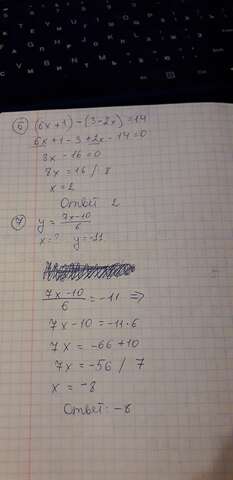 ⑥ (6x+1)-(3-2x)=14
6x+1-3+2x-14=0
8x-16=0
8x=16/8
x=2
Ответ 2
⑦ y=(7x-10)/6
x=? y=-11
(7x-10)/6=-11 ⇒
7x-10=-11·6
7x=-66+10
7x=-56/7
x=-8
Ответ: -8